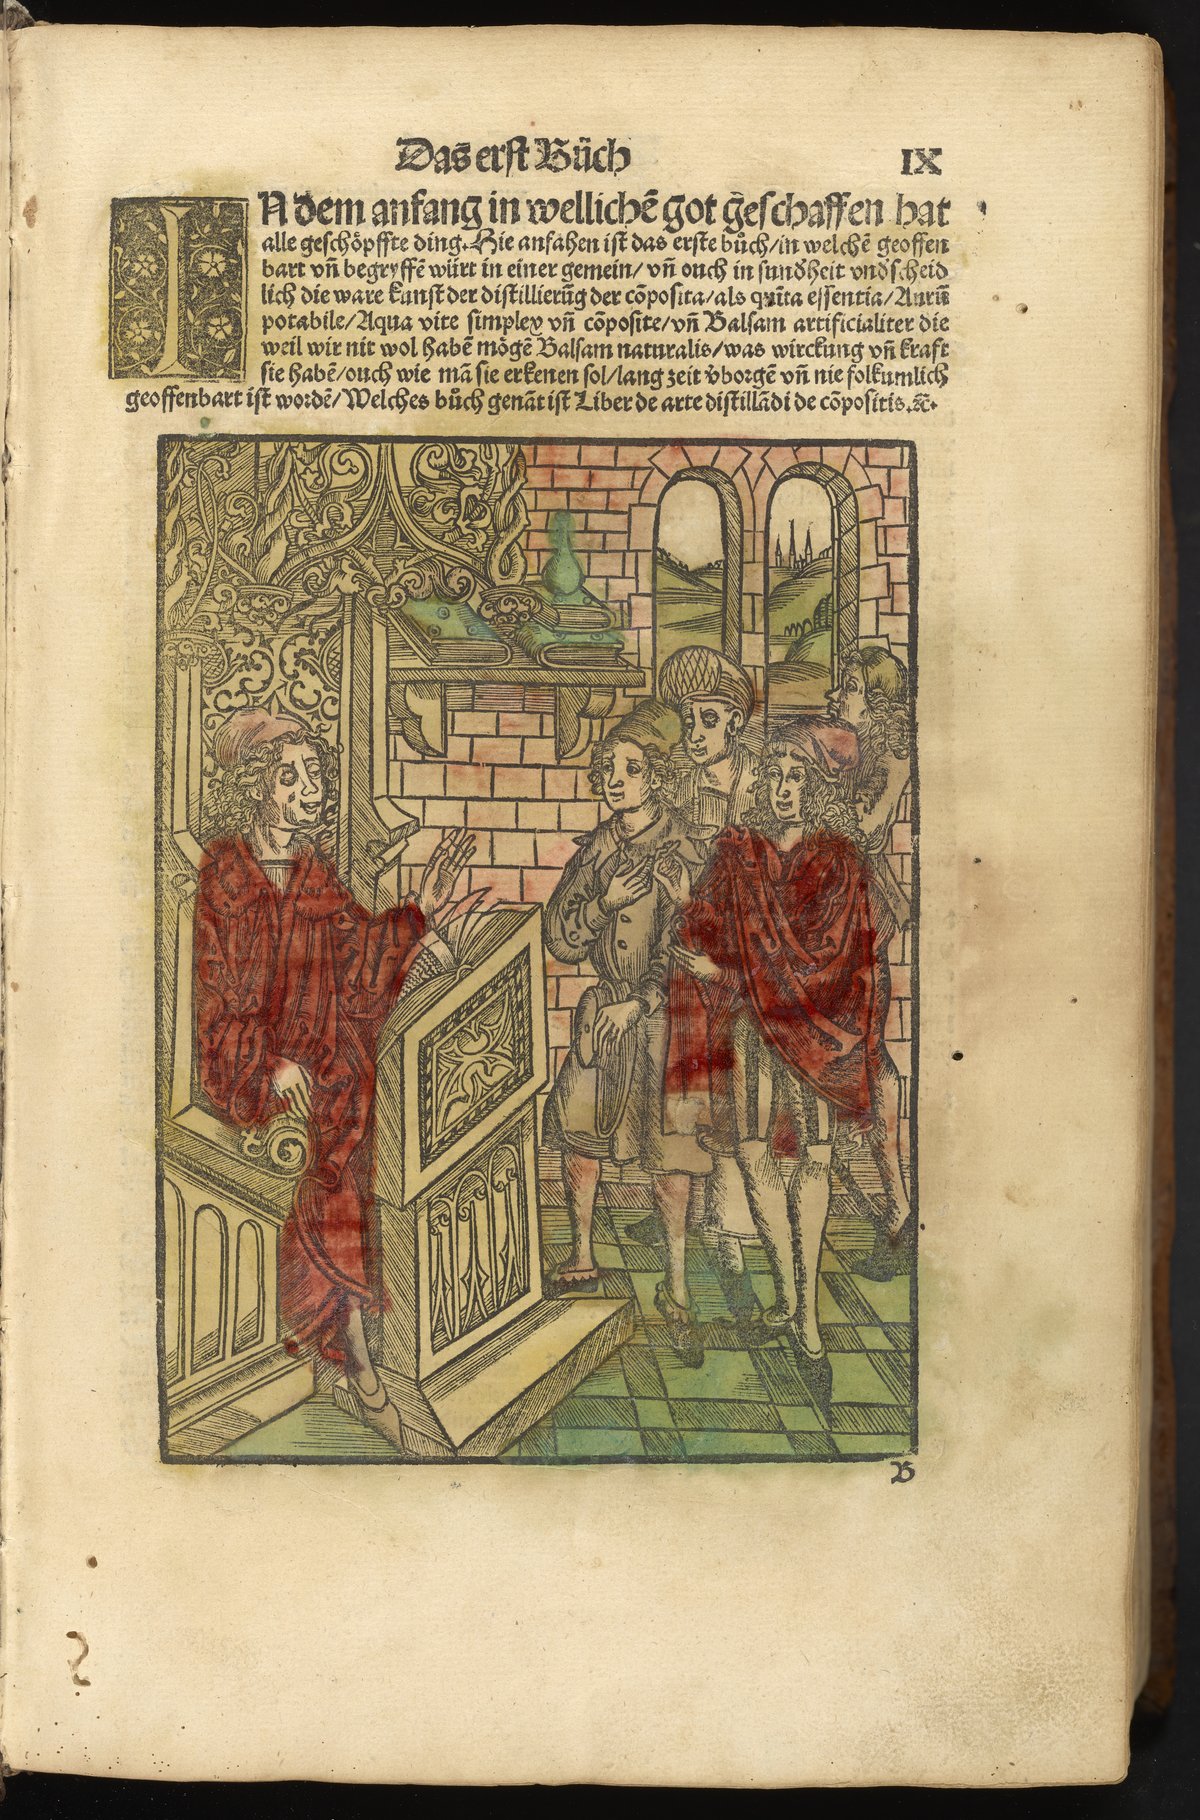 Das erst Bůch
IX
IN dem anfang in wellichē got geschaffen hat
alle geschöpffte ding. Hie anfahen ist das erste bůch/in welchē geoffen
bart vñ begryffē würt in einer gemein/ vñ ouch in sundheit vndscheid
lich die ware kunst der distillierūg der cōposita/als quīta essentia/Aurū
potabile/Aqua vite simplex vñ cōposite/vñ Balsam artificialiter die
weil wir nit wol habē mögē Balsam naturalis/was wirckung vñ kraft
sie habē/ouch wie mā sie erkenen sol/lang zeit v̄borgē vñ nie folkumlich
geoffenbart ist wordē/Welches bůch genāt ist Liber de arte distillādi de cōpositis.⁊c̄.
B